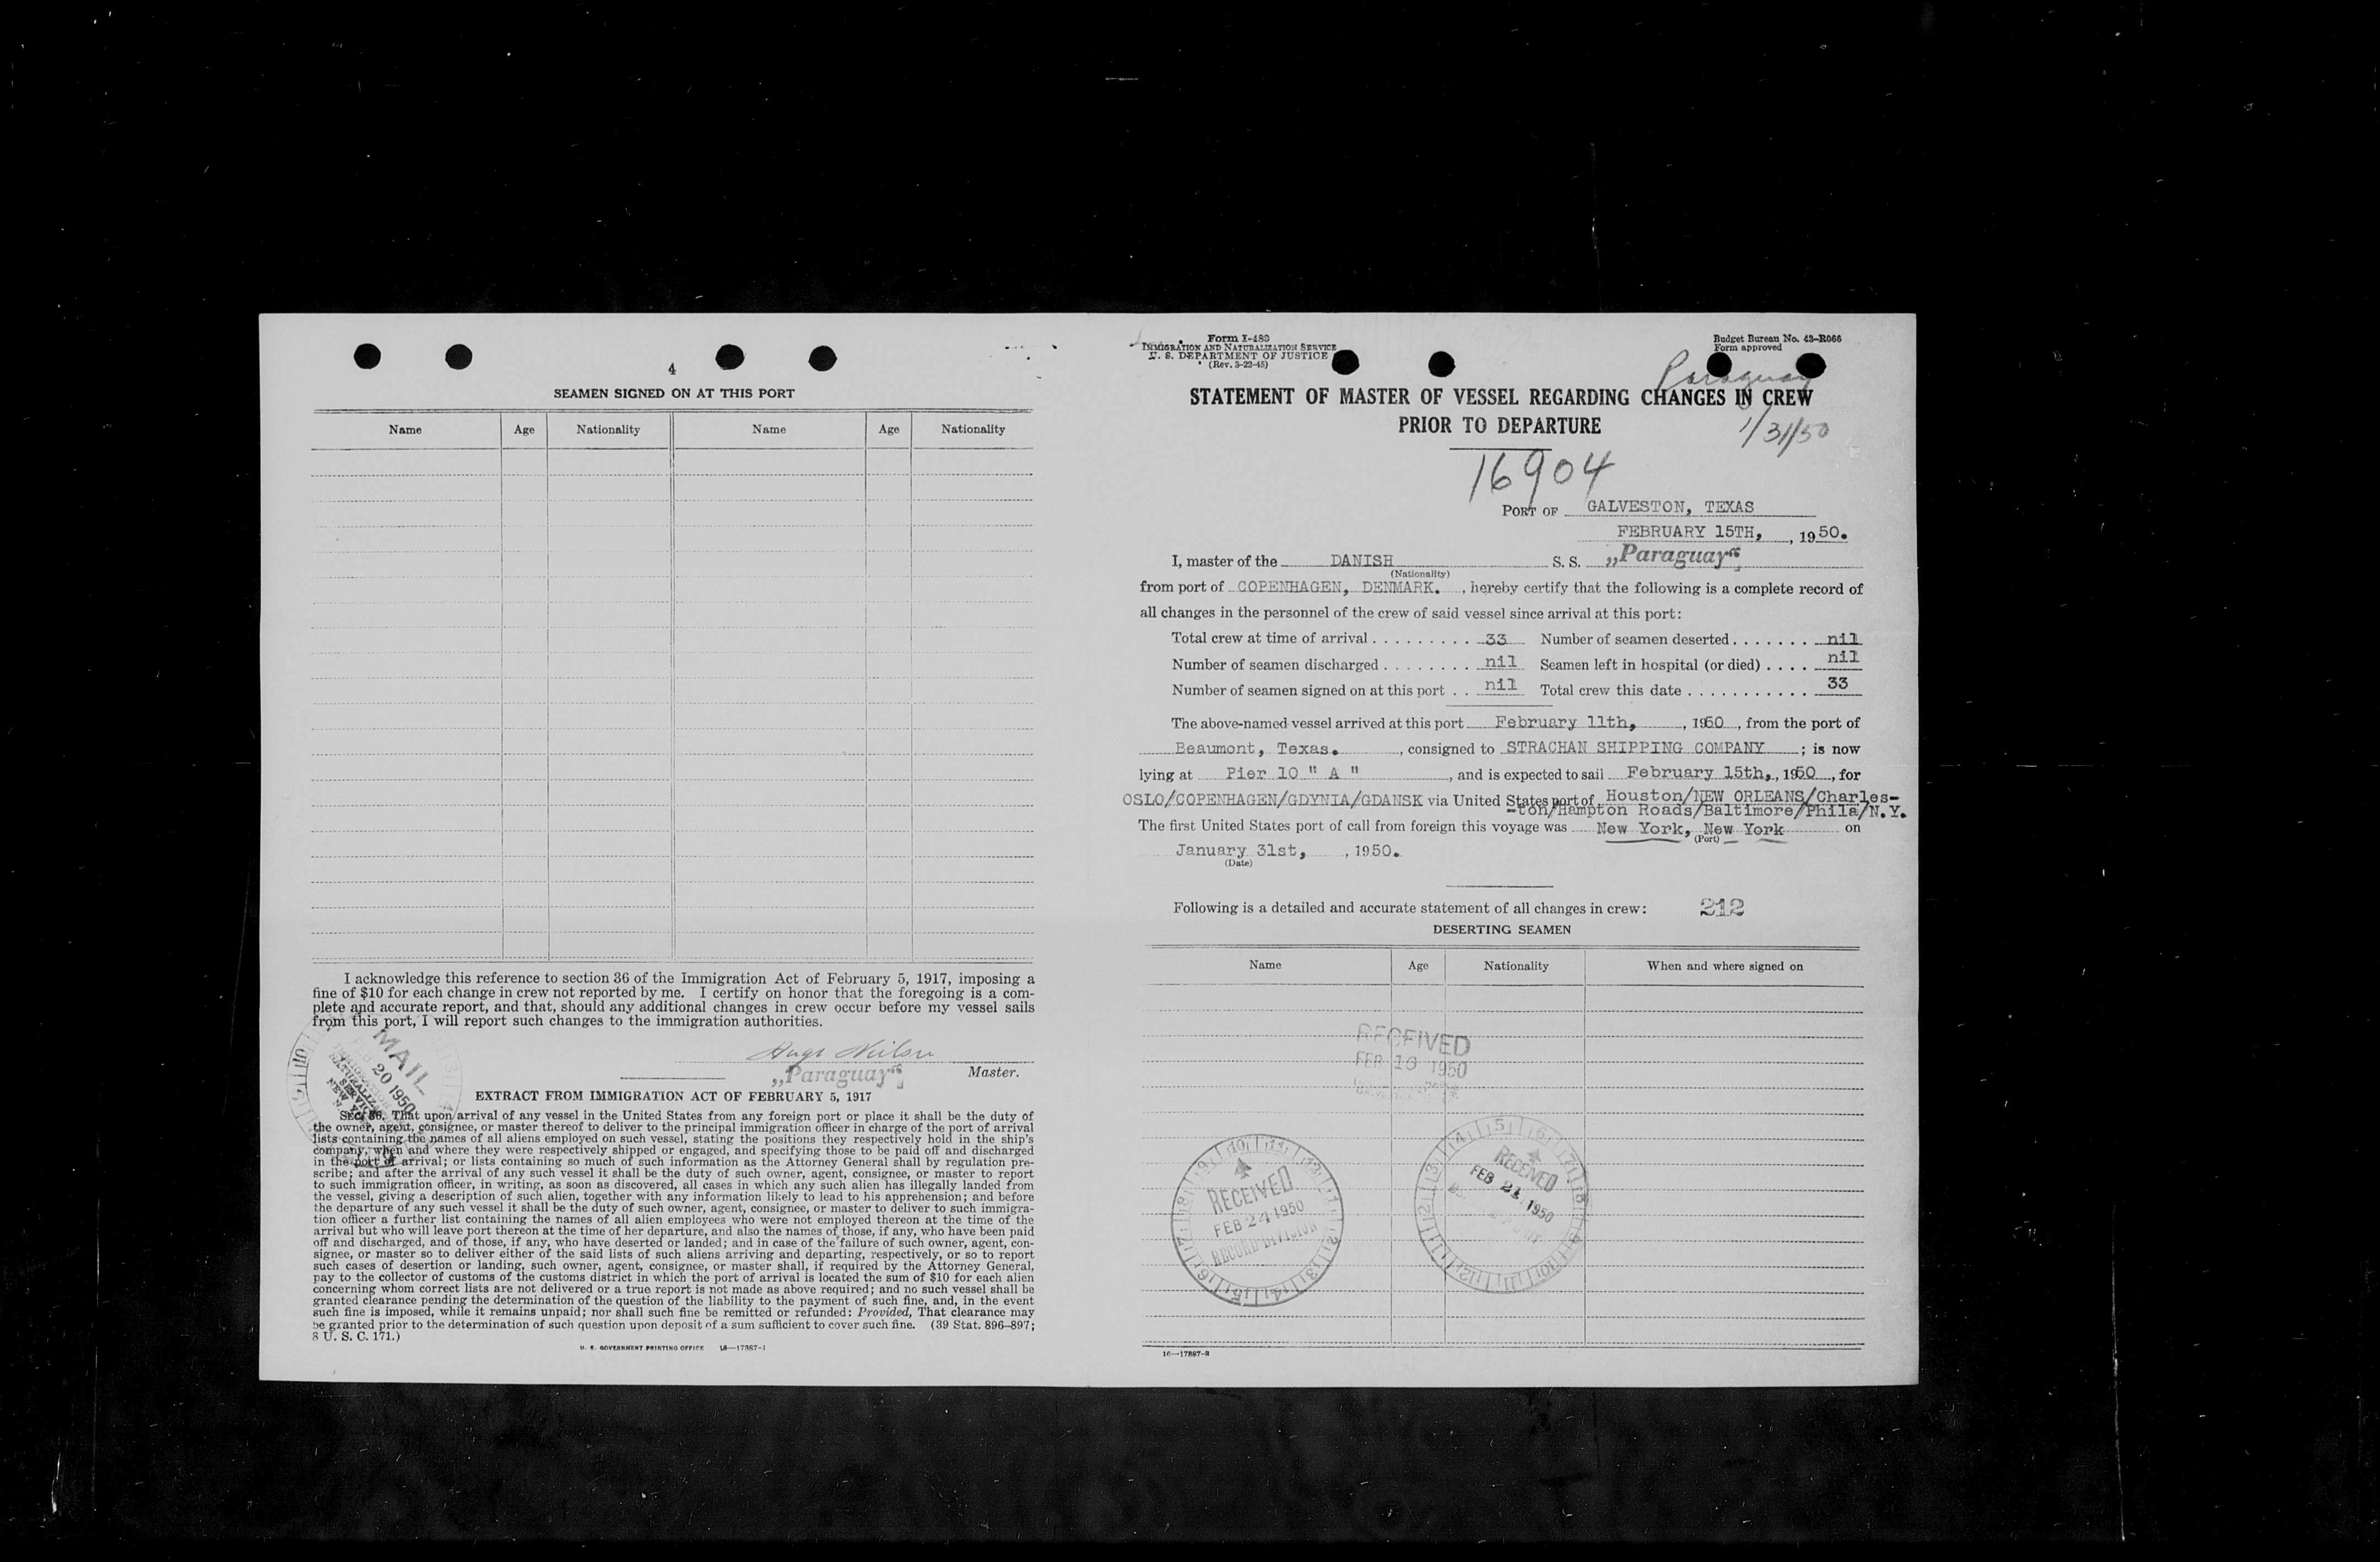 4
SEAMEN SIGNED ON AT THIS PORT
Name Age Nationality Name Age Nationality
I acknowledge this reference to section 36 of the Immigration Act of February 5, 1917, imposing a
fine of $10 for each change in crew not reported by me. I certify on honor that the foregoing is a com-
plete and accurate report, and that, should any additional changes in crew occur before my vessel sails
from this port, I will report such changes to the immigration authorities.
„Paraguay“ Master.
MAIL
20 1950
EXTRACT FROM IMMIGRATION ACT OF FEBRUARY 5, 1917
SEC. 36. That upon arrival of any vessel in the United States from any foreign port or place it shall be the duty of
the owner, agent, consignee, or master thereof to deliver to the principal immigration officer in charge of the port of arrival
lists containing the names of all aliens employed on such vessel, stating the positions they respectively hold in the ship's
company, when and where they were respectively shipped or engaged, and specifying those to be paid off and discharged
in the port of arrival; or lists containing so much of such information as the Attorney General shall by regulation pre-
scribe; and after the arrival of any such vessel it shall be the duty of such owner, agent, consignee, or master to report
to such immigration officer, in writing, as soon as discovered, all cases in which any such alien has illegally landed from
the vessel, giving a description of such alien, together with any information likely to lead to his apprehension; and before
the departure of any such vessel it shall be the duty of such owner, agent, consignee, or master to deliver to such immigra-
tion officer a further list containing the names of all alien employees who were not employed thereon at the time of the
arrival but who will leave port thereon at the time of her departure, and also the names of those, if any, who have been paid
off and discharged, and of those, if any, who have deserted or landed; and in case of the failure of such owner, agent, con-
signee, or master so to deliver either of the said lists of such aliens arriving and departing, respectively, or so to report
such cases of desertion or landing, such owner, agent, consignee, or master shall, if required by the Attorney General,
pay to the collector of customs of the customs district in which the port of arrival is located the sum of $10 for each alien
concerning whom correct lists are not delivered or a true report is not made as above required; and no such vessel shall be
granted clearance pending the determination of the question of the liability to the payment of such fine, and, in the event
such fine is imposed, while it remains unpaid; nor shall such fine be remitted or refunded: Provided, That clearance may
be granted prior to the determination of such question upon deposit of a sum sufficient to cover such fine. (39 Stat. 896–897;
8 U. S. C. 171.)
U. S. GOVERNMENT PRINTING OFFICE 16—17887-1
Form I-489
IMMIGRATION AND NATURALIZATION SERVICE
U. S. DEPARTMENT OF JUSTICE
(Rev. 3-22-45)
Budget Bureau No. 43-R066
Form approved
Paraguay
STATEMENT OF MASTER OF VESSEL REGARDING CHANGES IN CREW
PRIOR TO DEPARTURE
1/31/50
16904
PORT OF GALVESTON, TEXAS
FEBRUARY 15TH, , 1950.
I, master of the DANISH S. S. „Paraguay“
(Nationality)
from port of COPENHAGEN, DENMARK. , hereby certify that the following is a complete record of
all changes in the personnel of the crew of said vessel since arrival at this port:
Total crew at time of arrival . . . . . . . . . 33 Number of seamen deserted . . . . . . . nil
Number of seamen discharged . . . . . . . . nil Seamen left in hospital (or died) . . . . nil
Number of seamen signed on at this port . . nil Total crew this date . . . . . . . . . . . 33
The above-named vessel arrived at this port February 11th, , 1950 , from the port of
Beaumont, Texas. , consigned to STRACHAN SHIPPING COMPANY ; is now
lying at Pier 10 " A " , and is expected to sail February 15th, , 1950 , for
OSLO/COPENHAGEN/GDYNIA/GDANSK via United States port of Houston/NEW ORLEANS/Charles-
-ton/Hampton Roads/Baltimore/Phila/N.Y.
The first United States port of call from foreign this voyage was New York, New York on
(Port)
January 31st, , 1950.
(Date)
Following is a detailed and accurate statement of all changes in crew: 212
DESERTING SEAMEN
Name Age Nationality When and where signed on
RECEIVED
FEB 16 1950
RECEIVED
FEB 24 1950
RECORD DIVISION
RECEIVED
FEB 21 1950
16—17887-3